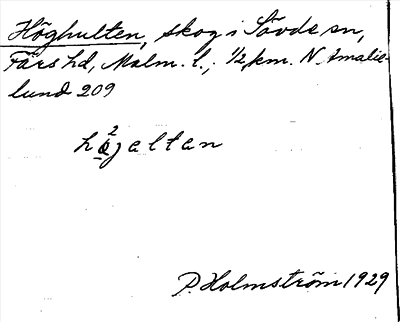 Höghulten, skog i Sövde sn,
Färs hd, Malm. l., 1/2 km. N. Amalie-
lund 209
P. Holmström 1929